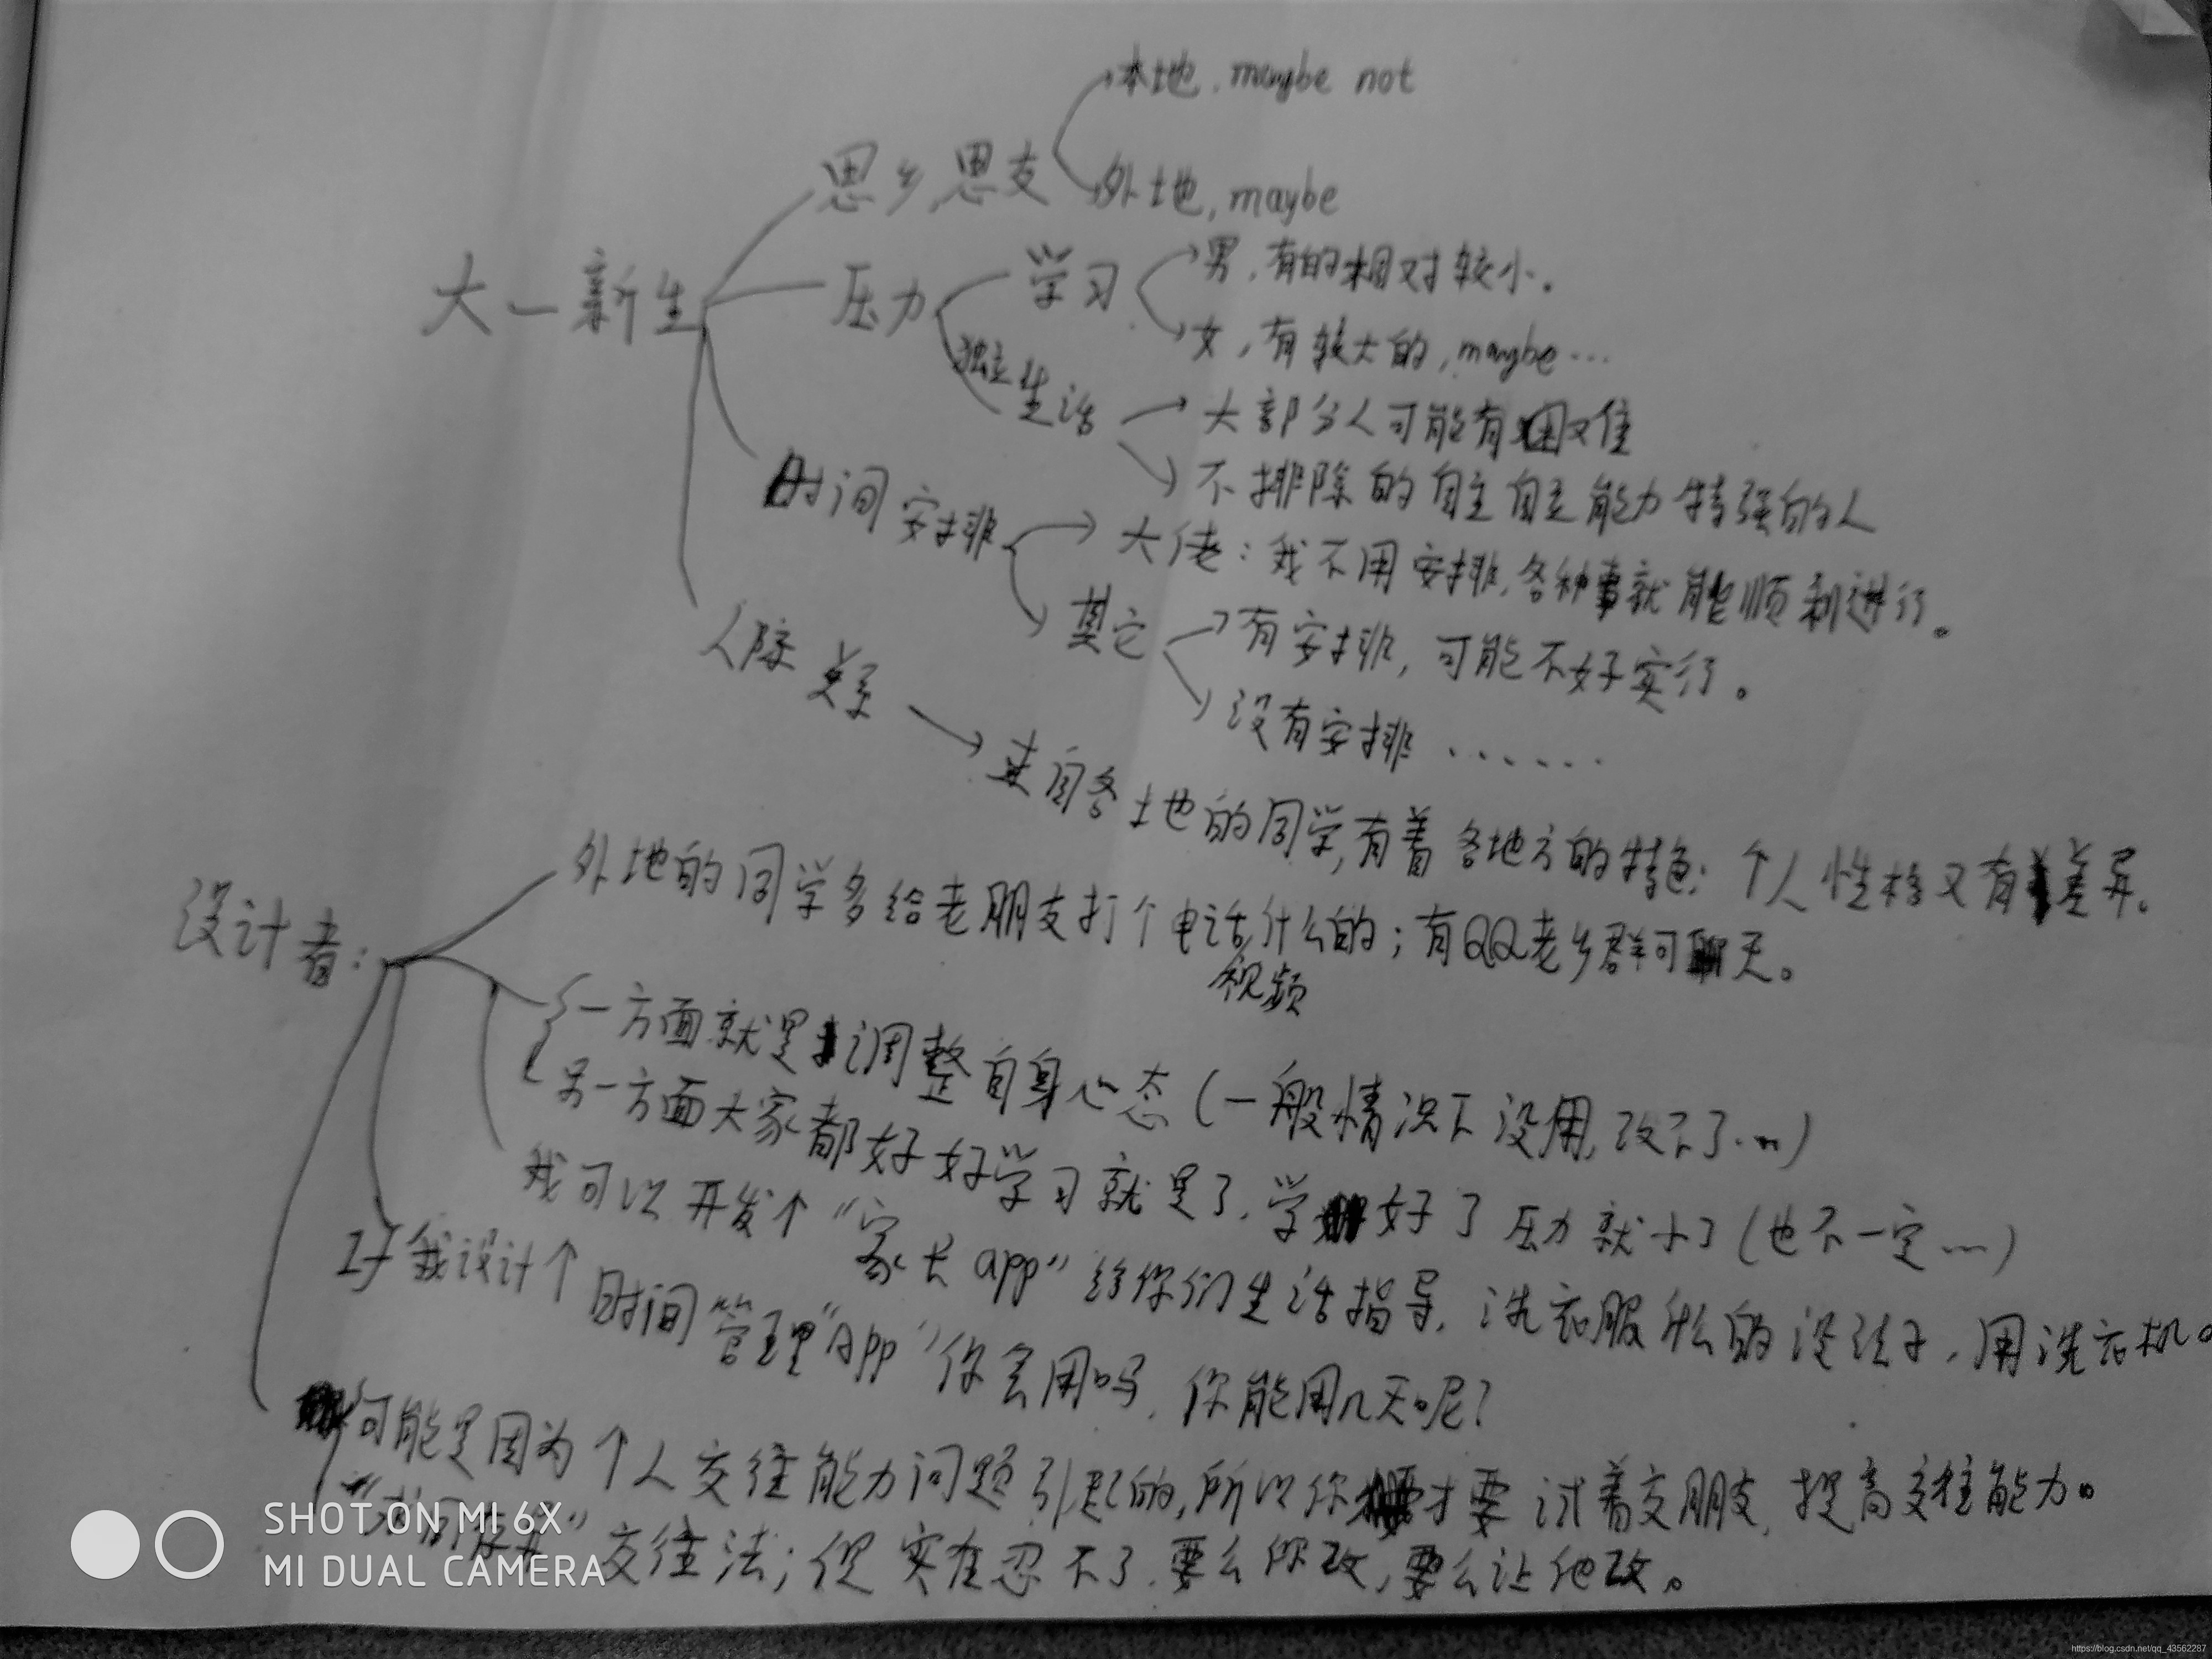 本地,maybe not
思乡,思友
外地,maybe
大一新生
压力
学习
男,有的相对较小.
女,有较大的,maybe...
独立生活
大部分人可能有困难
不排除的自主自立能力特强的人
时间安排
大佬:我不用安排,各种事就能顺利进行。
其它
有安排,可能不好实行。
没有安排 ......
人际关系
来自各地的同学,有着各地方的特色;个人性格又有差异。
设计者:
外地的同学多给老朋友打个电话,什么的;有QQ老乡群可聊天。
视频
一方面就是调整自身心态(一般情况下没用,改不了...)
另一方面大家都好好学习就是了,学好了压力就小了(也不一定...)
我可以开发个“家长app”给你们生活指导,洗衣服什么的没法子,用洗衣机。
我设计个时间管理“App”你会用吗,你能用几天呢?
可能是因为个人交往能力问题引起的,所以你才要试着交朋友,提高交往能力。
交往法;但实在忍不了,要么你改,要么让他改。
SHOT ON MI 6X
MI DUAL CAMERA
https://blog.csdn.net/qq_43562287